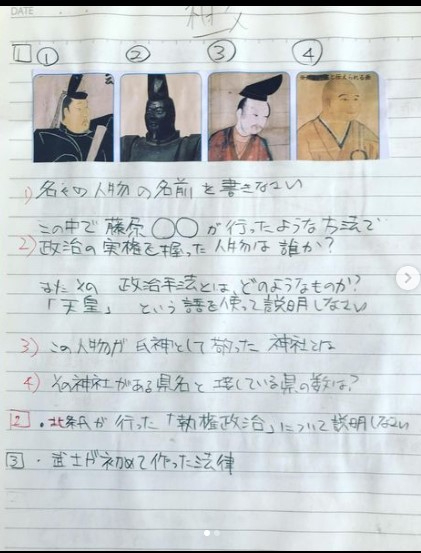 DATE
1 ① ② ③ ④
1) 各々の人物の名前を書きなさい
この中で藤原〇〇が行ったような方法で
2) 政治の実権を握った人物は誰か?
またその政治手法とは、どのようなものか?
「天皇」という語を使って説明しなさい
3) この人物が氏神として敬った神社とは
4) その神社がある県名と接している県の数は?
2 ・北条氏が行った「執権政治」について説明しなさい
3 ・武士が初めて作った法律